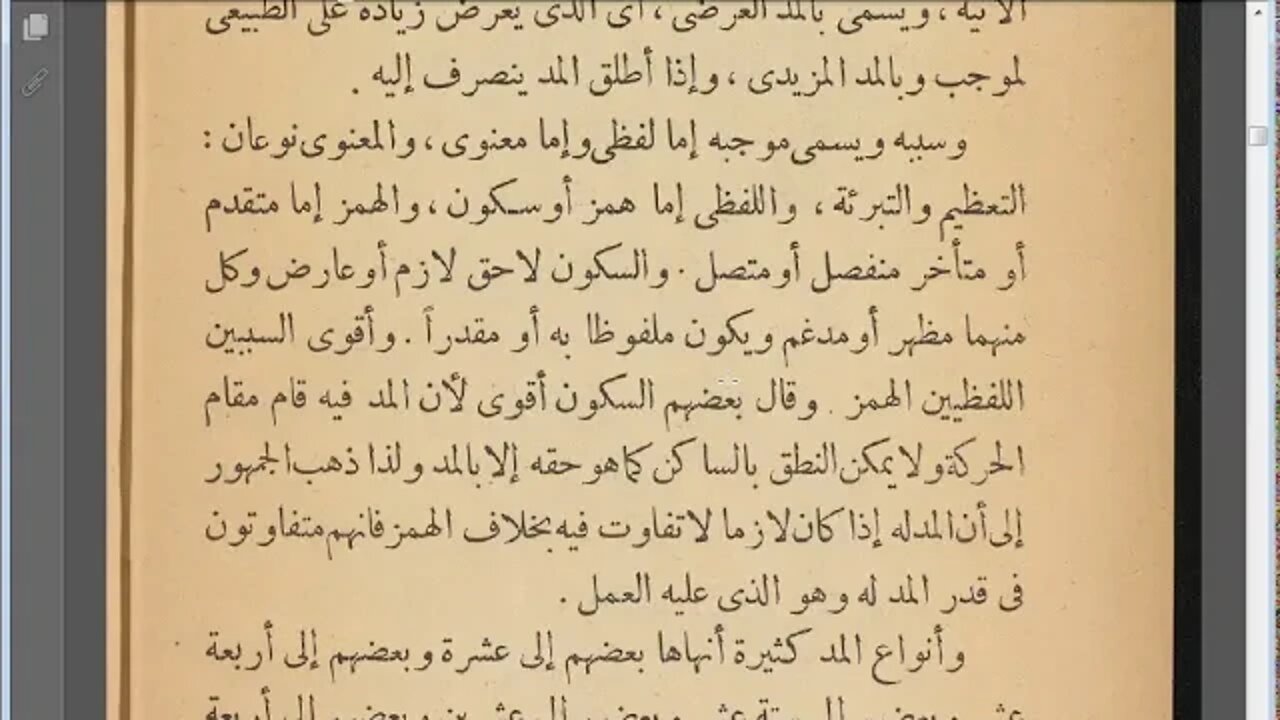 الآتية ، ويسمى بالمد العرضى ، أى الذى يعرض زيادة على الطبيعى
لموجب وبالمد المزيدى ، وإذا أطلق المد ينصرف إليه .
وسببه ويسمى موجبه إما لفظى وإما معنوى ، والمعنوى نوعان :
التعظيم والتبرئة ، واللفظى إما همز أو سكون ، والهمز إما متقدم
أو متأخر منفصل أو متصل . والسكون لاحق لازم أو عارض وكل
منهما مظهر أو مدغم ويكون ملفوظا به أو مقدراً . وأقوى السببين
اللفظيين الهمز . وقال بعضهم السكون أقوى لأن المد فيه قام مقام
الحركة ولا يمكن النطق بالساكن كما هو حقه إلا بالمد ولذا ذهب الجمهور
إلى أن المد له إذا كان لازما لا تفاوت فيه بخلاف الهمز فانهم متفاوتون
فى قدر المد له وهو الذى عليه العمل .
وأنواع المد كثيرة أنهاها بعضهم إلى عشرة وبعضهم إلى أربعة
عشر وبعضهم إلى ستة عشر وبعضهم إلى عشرين وبعضهم إلى أربعة